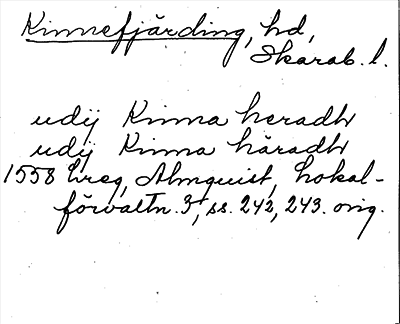 Kinnefjärding, hd,
Skarab. l.
udij Kinna heradh
udij Kinna häradh
1558 Ereg, Almquist, Lokal-
förvaltn. 3, ss. 242, 243. orig.